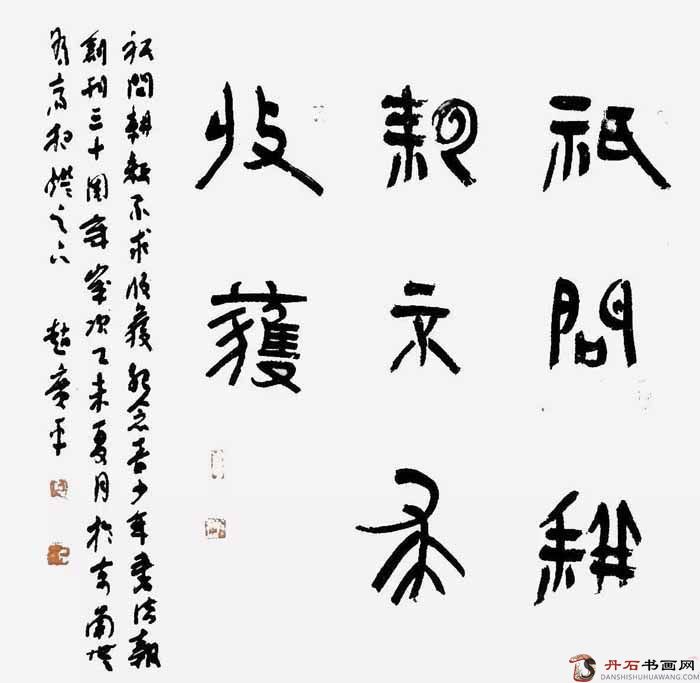 祇問耕
耘不求
收穫
祇問耕耘不求收穫紀念青少年書法報
創刊三十周年歲次乙未夏月於京南
趙廣平
丹石书画网
DANSHISHUHUAWANG.COM